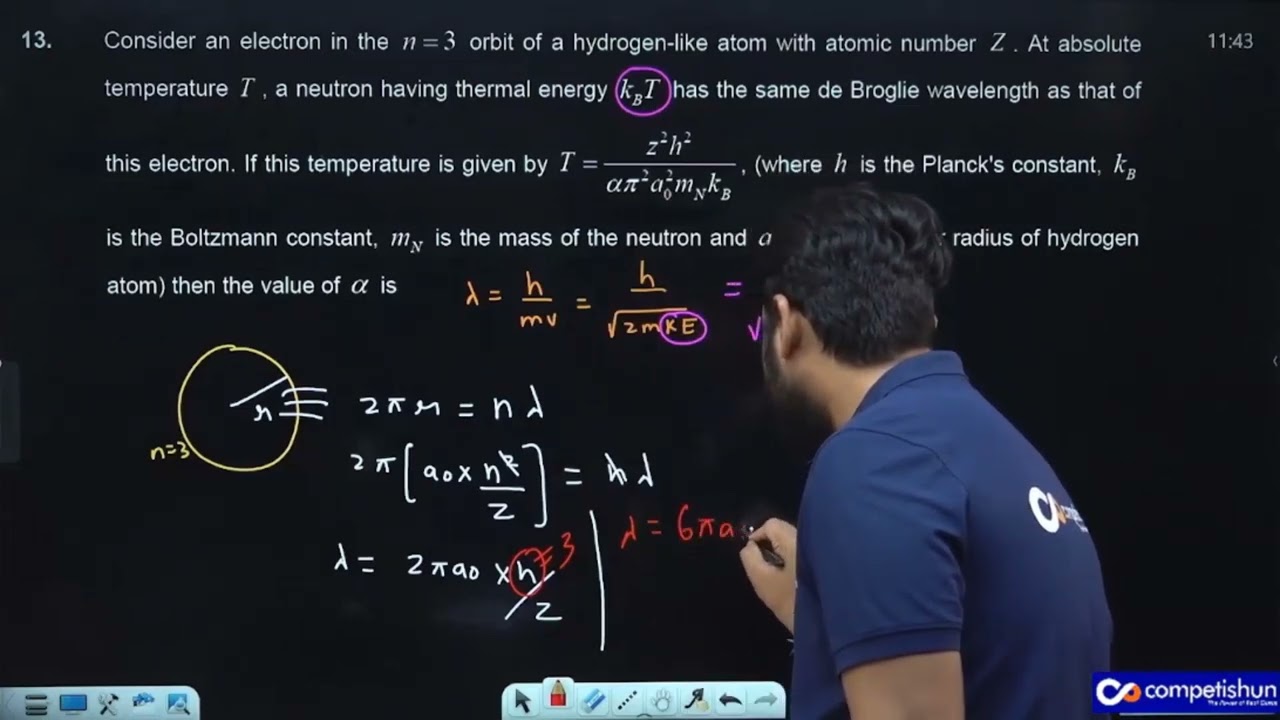 13. Consider an electron in the n = 3 orbit of a hydrogen-like atom with atomic number Z . At absolute 11:43
temperature T , a neutron having thermal energy k_BT has the same de Broglie wavelength as that of
this electron. If this temperature is given by T = z²h² / απ²a₀²m_Nk_B , (where h is the Planck's constant, k_B
is the Boltzmann constant, m_N is the mass of the neutron and a radius of hydrogen
atom) then the value of α is
λ = h/mv = h/√2mKE = √
n=3
r
2πr = nλ
2π[a0 × n²/Z] = nλ
λ = 2πa0 × n/Z = 3
λ = 6πa
competishun